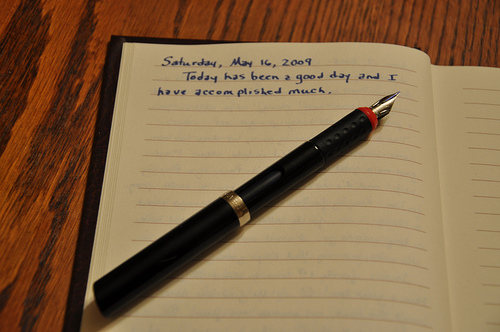 Saturday, May 16, 2009
Today has been a good day and I
have accomplished much.